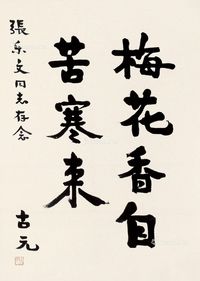 梅花香自
苦寒来
張乐文同志存念
古元